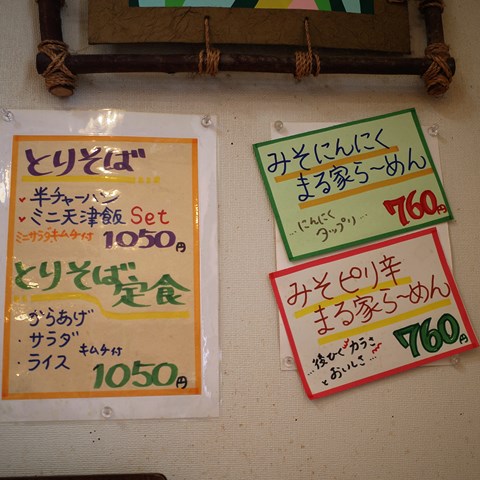 とりそば...
✓半チャーハン
✓ミニ天津飯 Set
ミニサラダキムチ付 1050円
とりそば
定食
・からあげ
・サラダ
・ライス キムチ付
1050円
みそにんにく
まる家ら〜めん
760円
...にんにく
タップリ...
みそピリ辛
まる家ら〜めん
760円
...後ひくカラさ
とおいしさ...